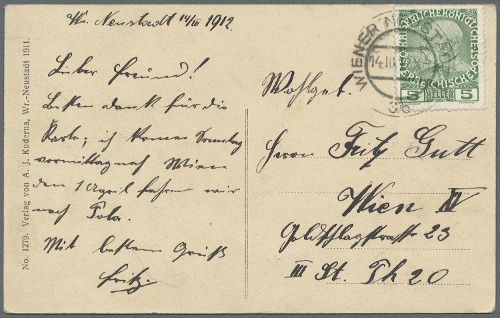 Wr. Neustadt 14/III 1912.
Lieber Freund!
Besten Dank für die
Karte; ich komme Sonntag
vormittag nach Wien
den 1 April fahren wir
nach Pola.
Mit besten Gruß
Fritz.
No. 1279. Verlag von A. J. Kuderna, Wr.-Neustadt 1911.
WIENER NEUSTADT
14.III.12
5 HELLER 5
Wohlgeb.
Herrn Fritz Gutt
Wien IV
Goldschlagstrasse 23
III St. Th 20